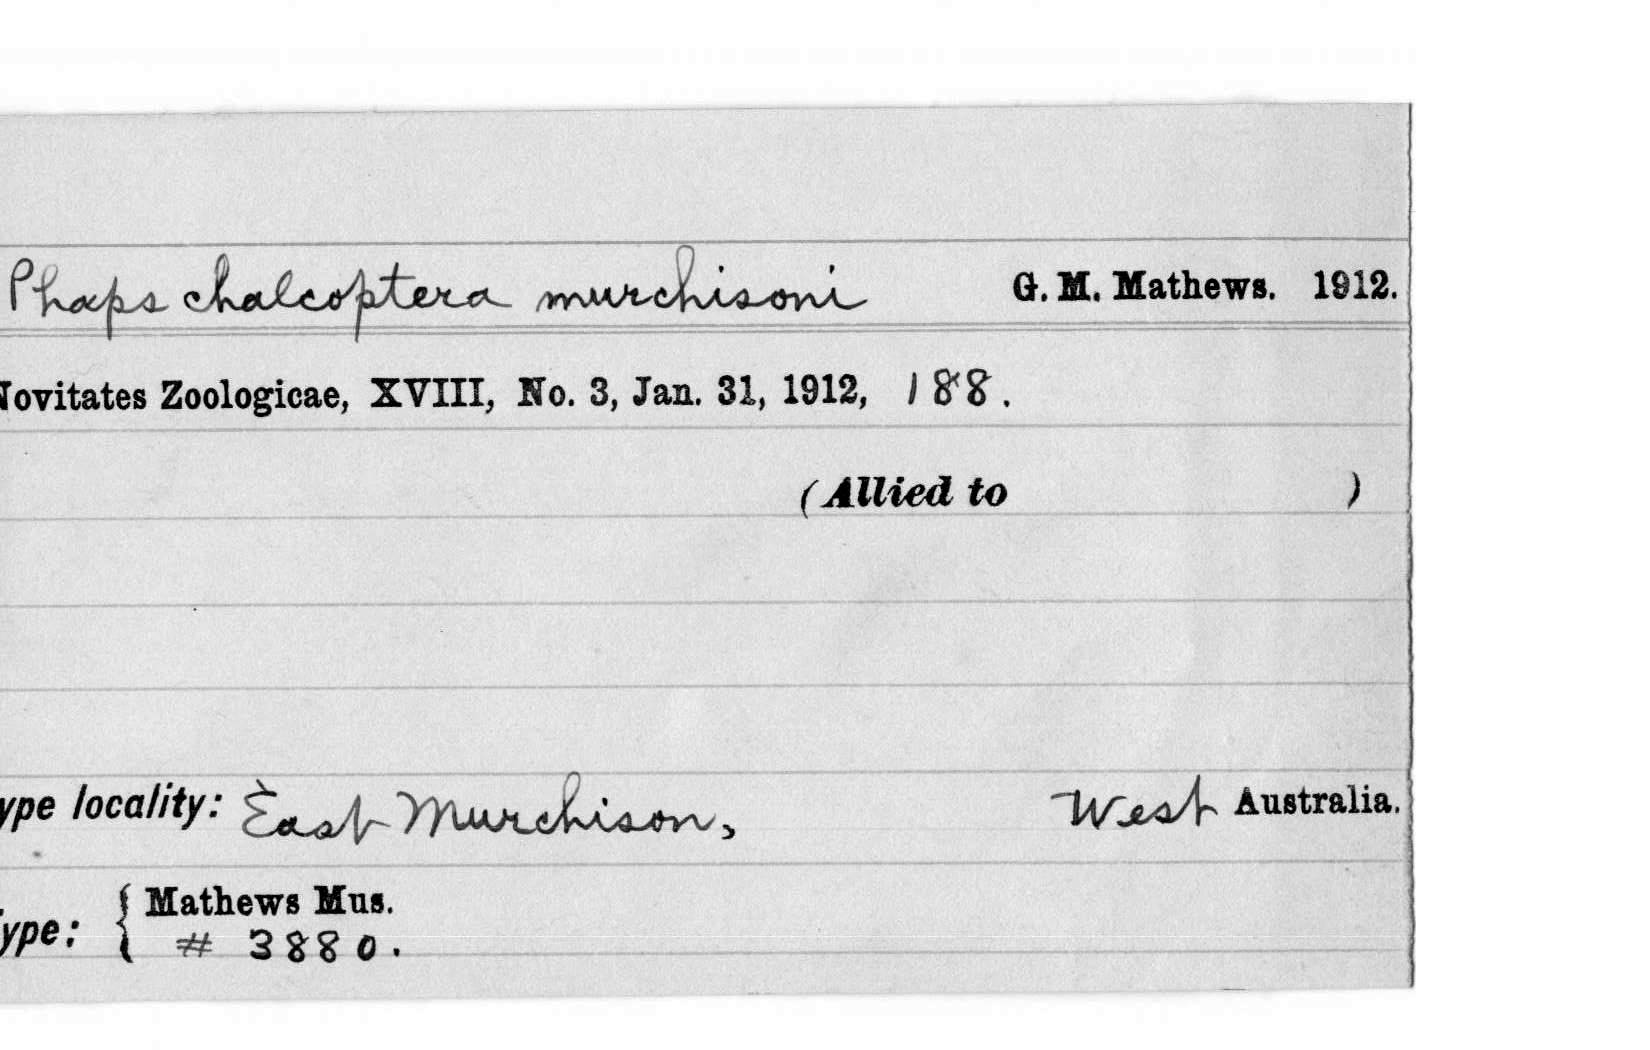 Phaps chalcoptera murchisoni G. M. Mathews. 1912.
Novitates Zoologicae, XVIII, No. 3, Jan. 31, 1912, 188.
(Allied to )
ype locality: East Murchison, West Australia.
ype: { Mathews Mus.
# 3880.